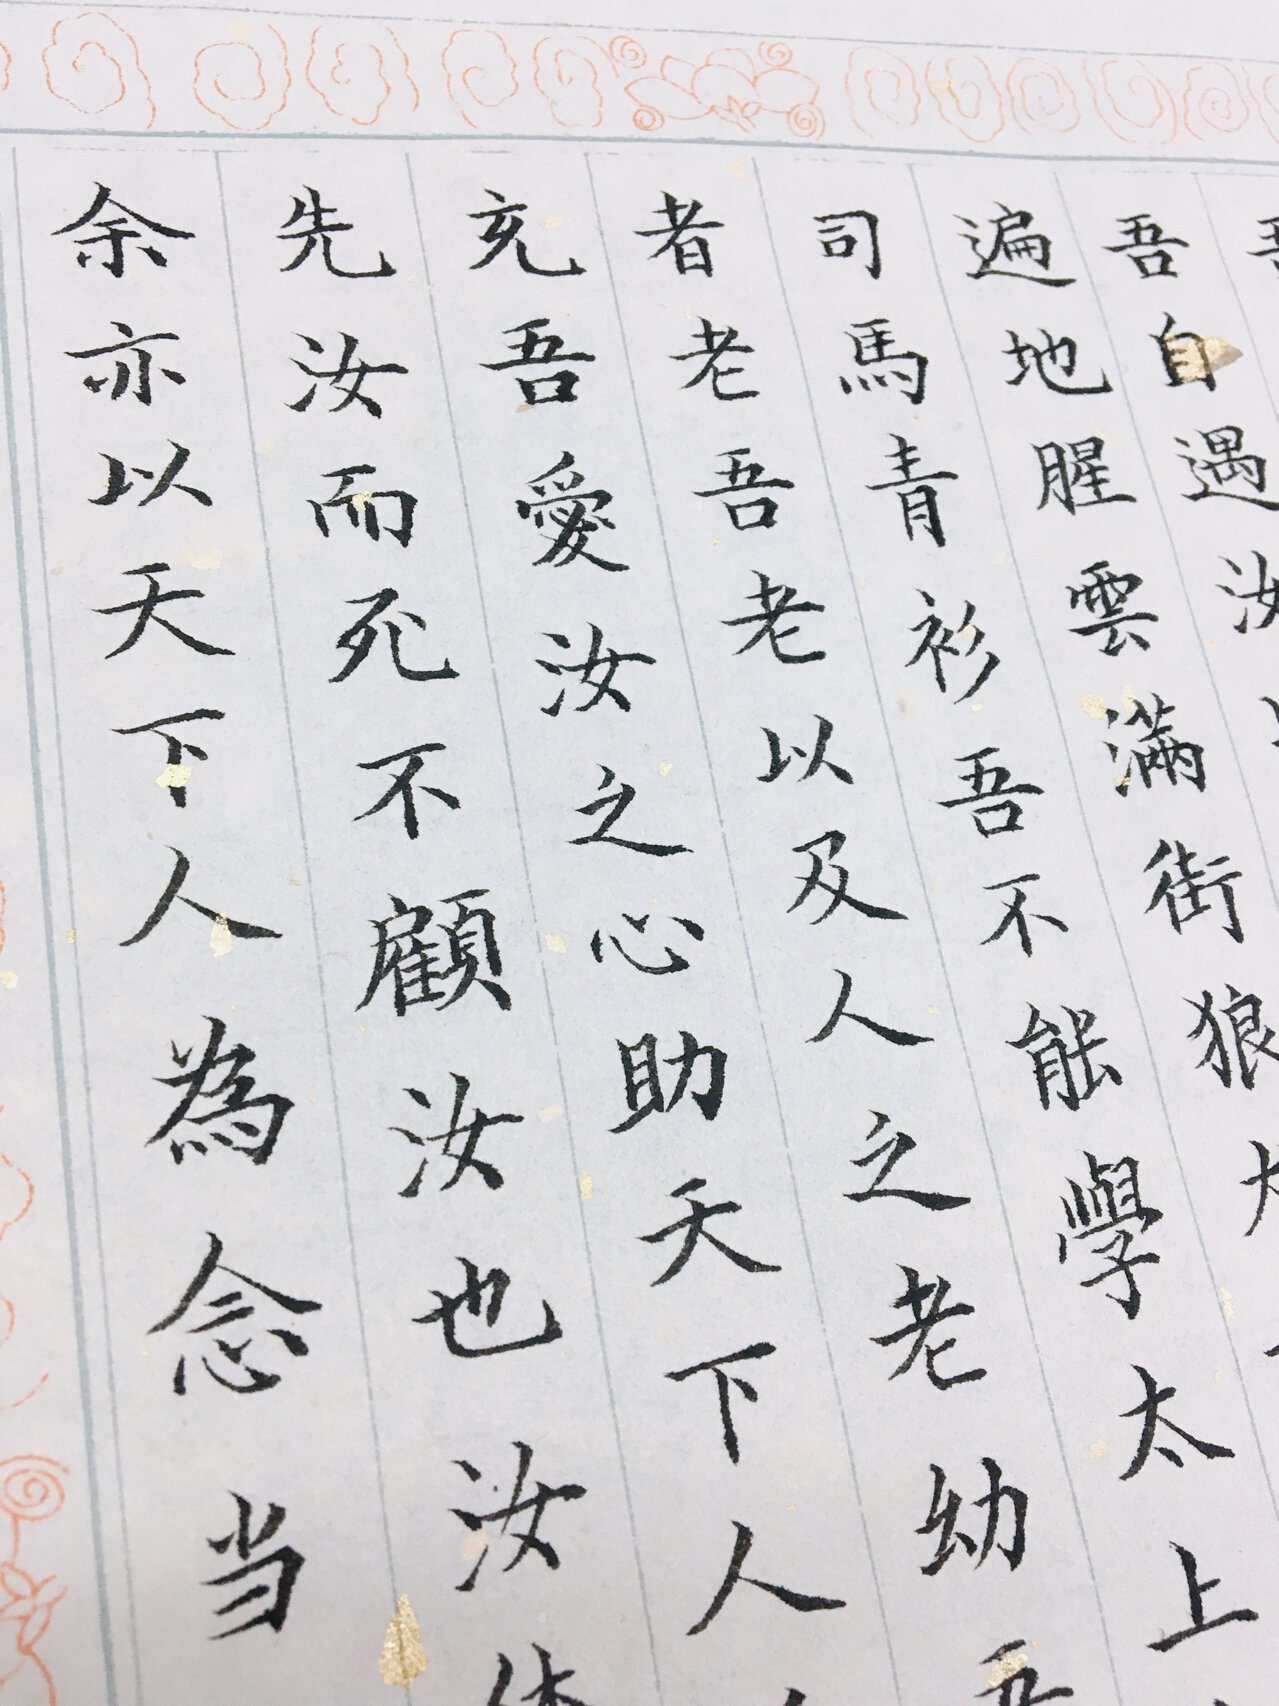 吾自遇汝
遍地腥雲滿街狼
司馬青衫吾不能學太上
者老吾老以及人之老幼吾
充吾愛汝之心助天下人
先汝而死不顧汝也汝体
余亦以天下人為念当